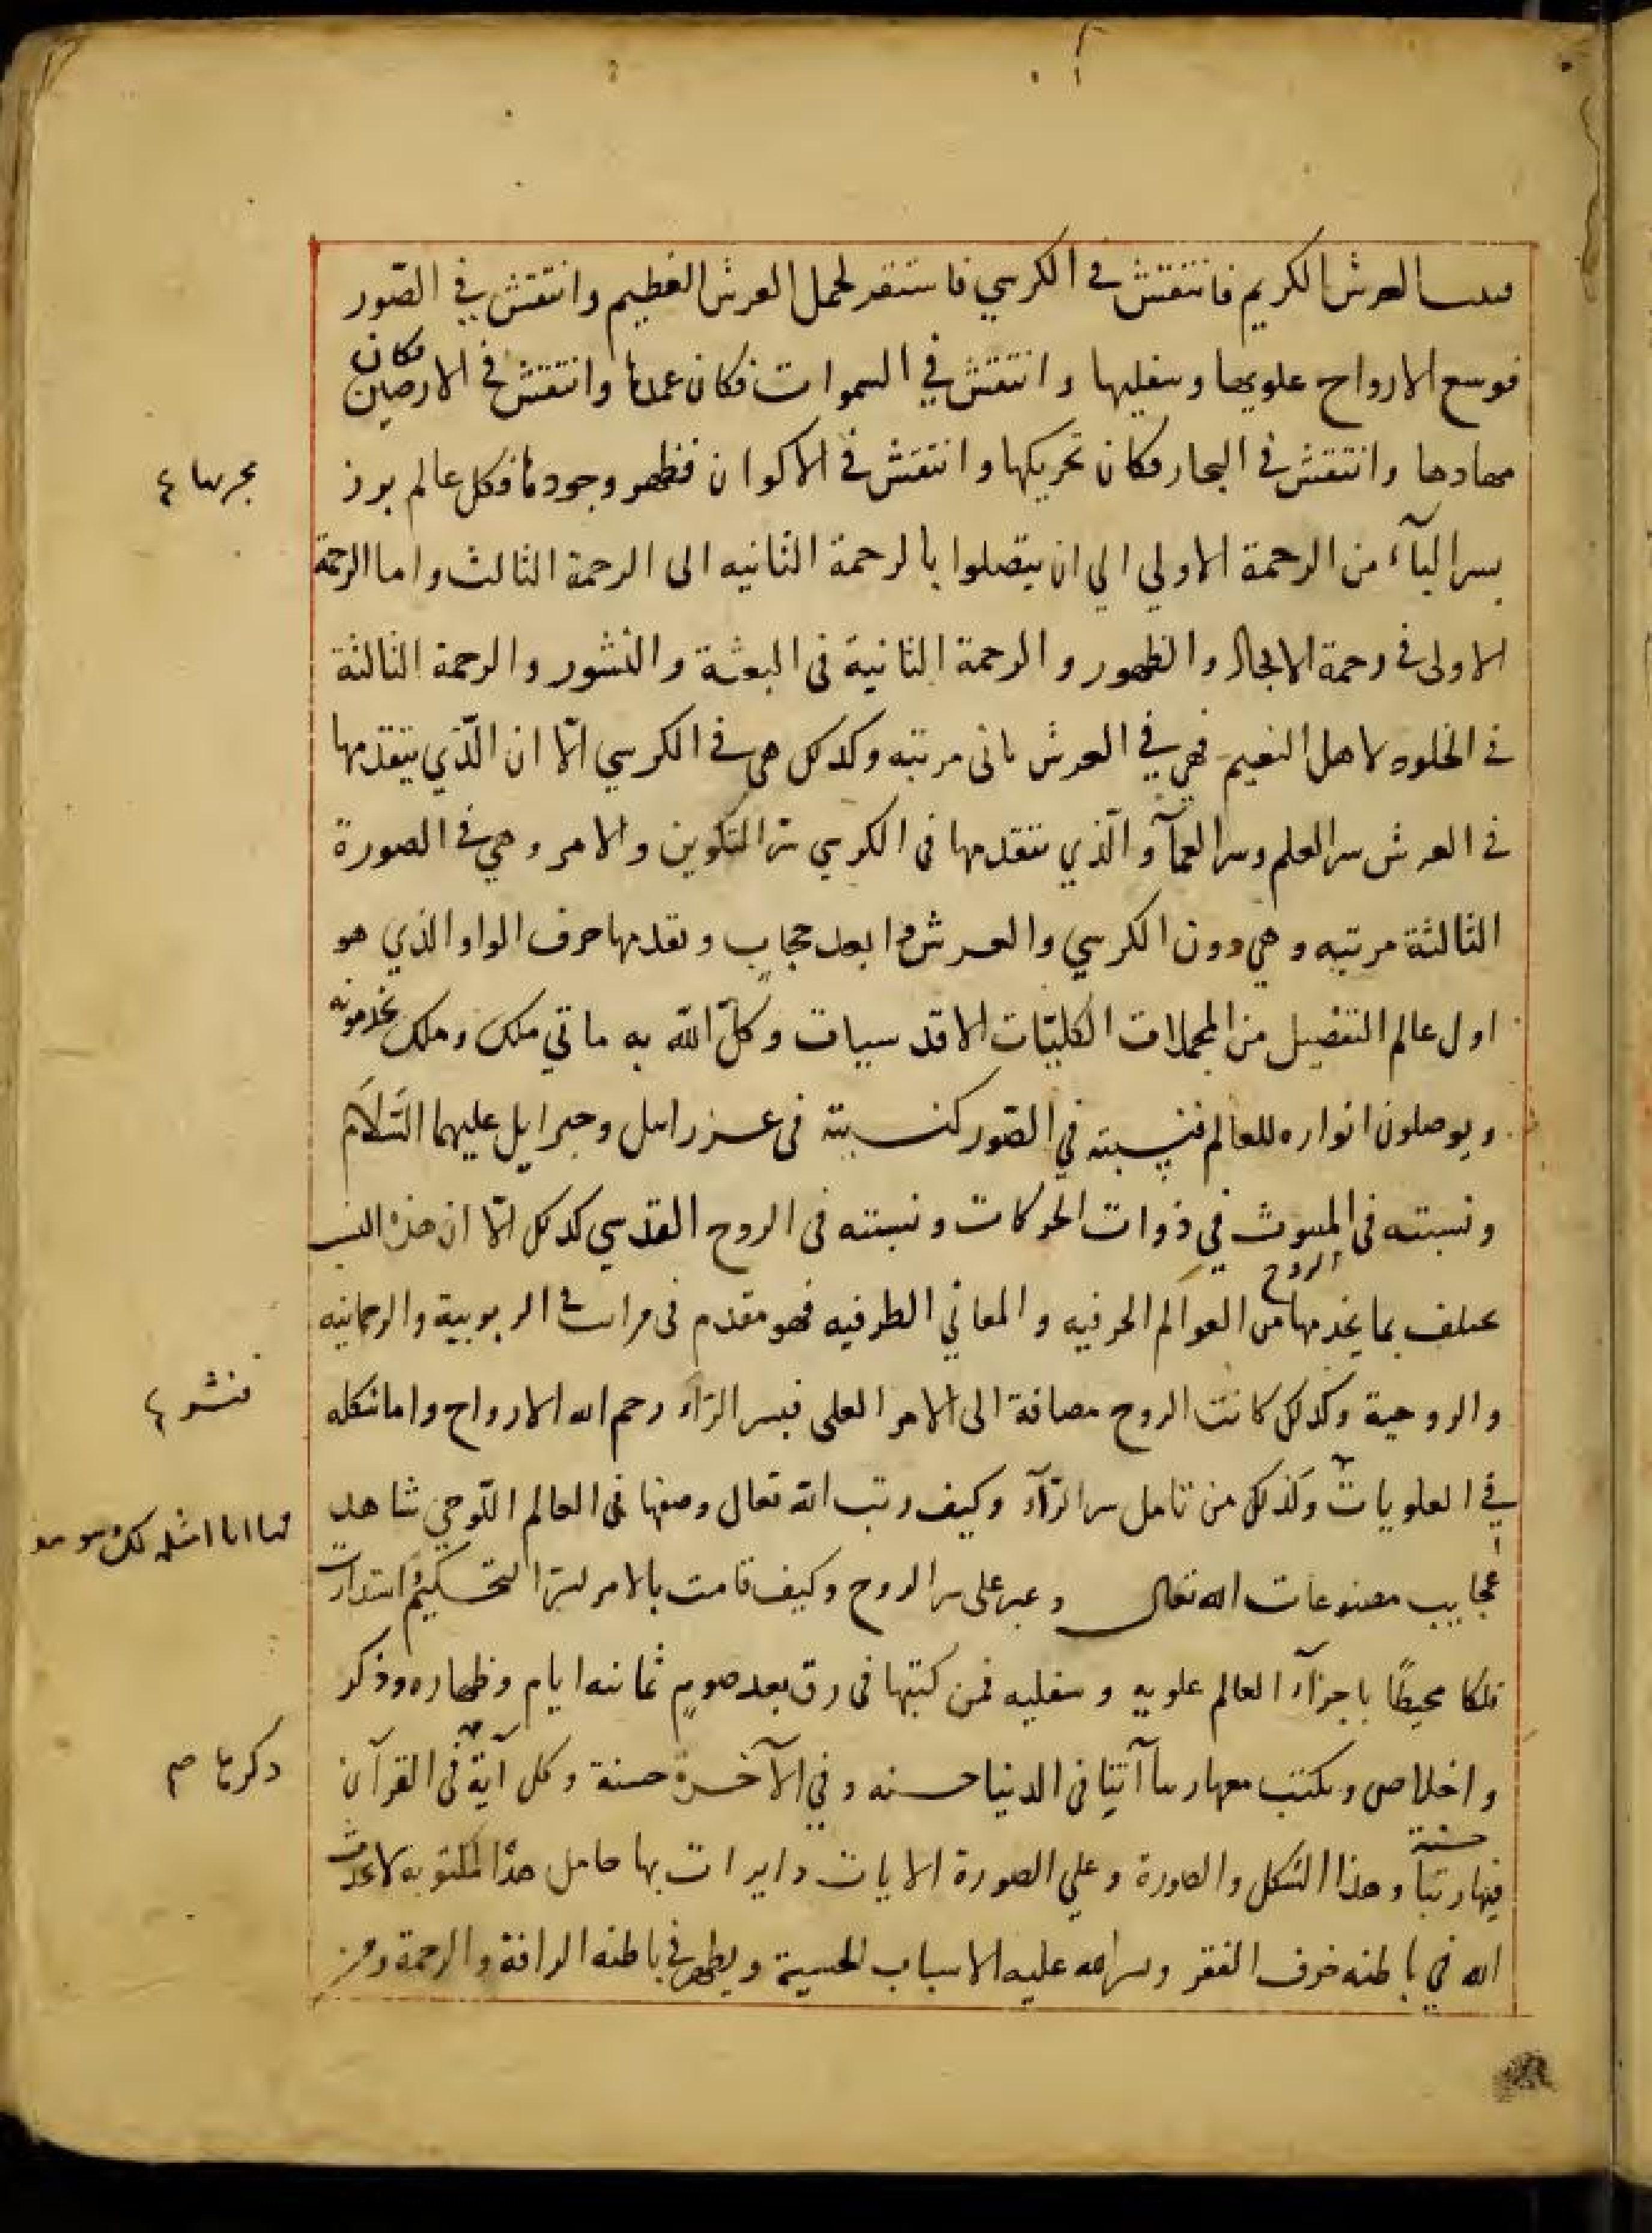 العرش الكريم فانتقش في الكرسي فاستقر لحمل العرش العظيم وانتقش في الصّور
فوسع الارواح علويها وسفليها وانتقش في السموات فكان عمدها وانتقش في الارضين فكان
مهادها وانتقش في البحار فكان تحريكها وانتقش في الاكوان فظهر وجودها فكل عالم برز
بسر البآء من الرحمة الاولي الي ان يتصلوا بالرحمة الثانيه الى الرحمة الثالث واما الرحمة
الاولى في رحمة الايجاد والظهور والرحمة الثانية في البعثة والنشور والرحمة الثالثة
في الخلود لاهل النعيم فهي في العرش ثاني مرتبه وكذلك هي في الكرسي الّا ان الّذي يتقدمها
في العرش سر العلم وسر العمآ والّذي يتقدمها في الكرسي سرّ التكوين والامر وهي في الصورة
الثالثة مرتبه وهي دون الكرسي والعرش ابعد حجاب وتقدمها حرف الواو الذي هو
اول عالم التفصيل من المجملات الكليّات الاقدسيات وكلّ اللّه به ماتي ملك وملك يخدمونه
ويوصلون انواره للعالم فنسبته في الصّور كنسبته في عزراىىل وجبرايل عليهما السّلام
ونسبته في المبثوث في ذوات الحركات ونسبته في الروح القدسي كذلك الّا ان هذه النسب
تختلف بما يخدمها من العوالم الحرفيه والمعاني الظرفيه فهو مقدم في مراتب الربوبية والرحمانيه
الروح
والروحية وكذلك كانت الروح مضافة الى الامر العلي فبسر الرّاء رحم الله الارواح واما شكله
في العلويات وكذلك من تامل سر الرّآء وكيف رتب الله تعالى وصفها في العالم اللّوحي شاهد
عجايب مصنوعات الله تعالى وعبر على سر الروح وكيف قامت بالامر لسرّ التحكيم استدارت
فلكا محيطًا باجزآء العالم علويه وسفليه فمن كتبها في رق بعد صوم ثمانيه ايام وطهاره وذكر
واخلاص ويكتب معها ربنا آتنا في الدنيا حسنه وفي الآخرة حسنة وكل آية في القرآن
فيها ربنا وهذا الشكل والصورة وعلي الصورة الايات دايرات بها حامل هذا المكتوبه لا يحدث
حسنة
الله في باطنه خوف الفقر ويسر الله عليه الاسباب الحسية ويظهر في باطنه الرافة والرحمة ومن